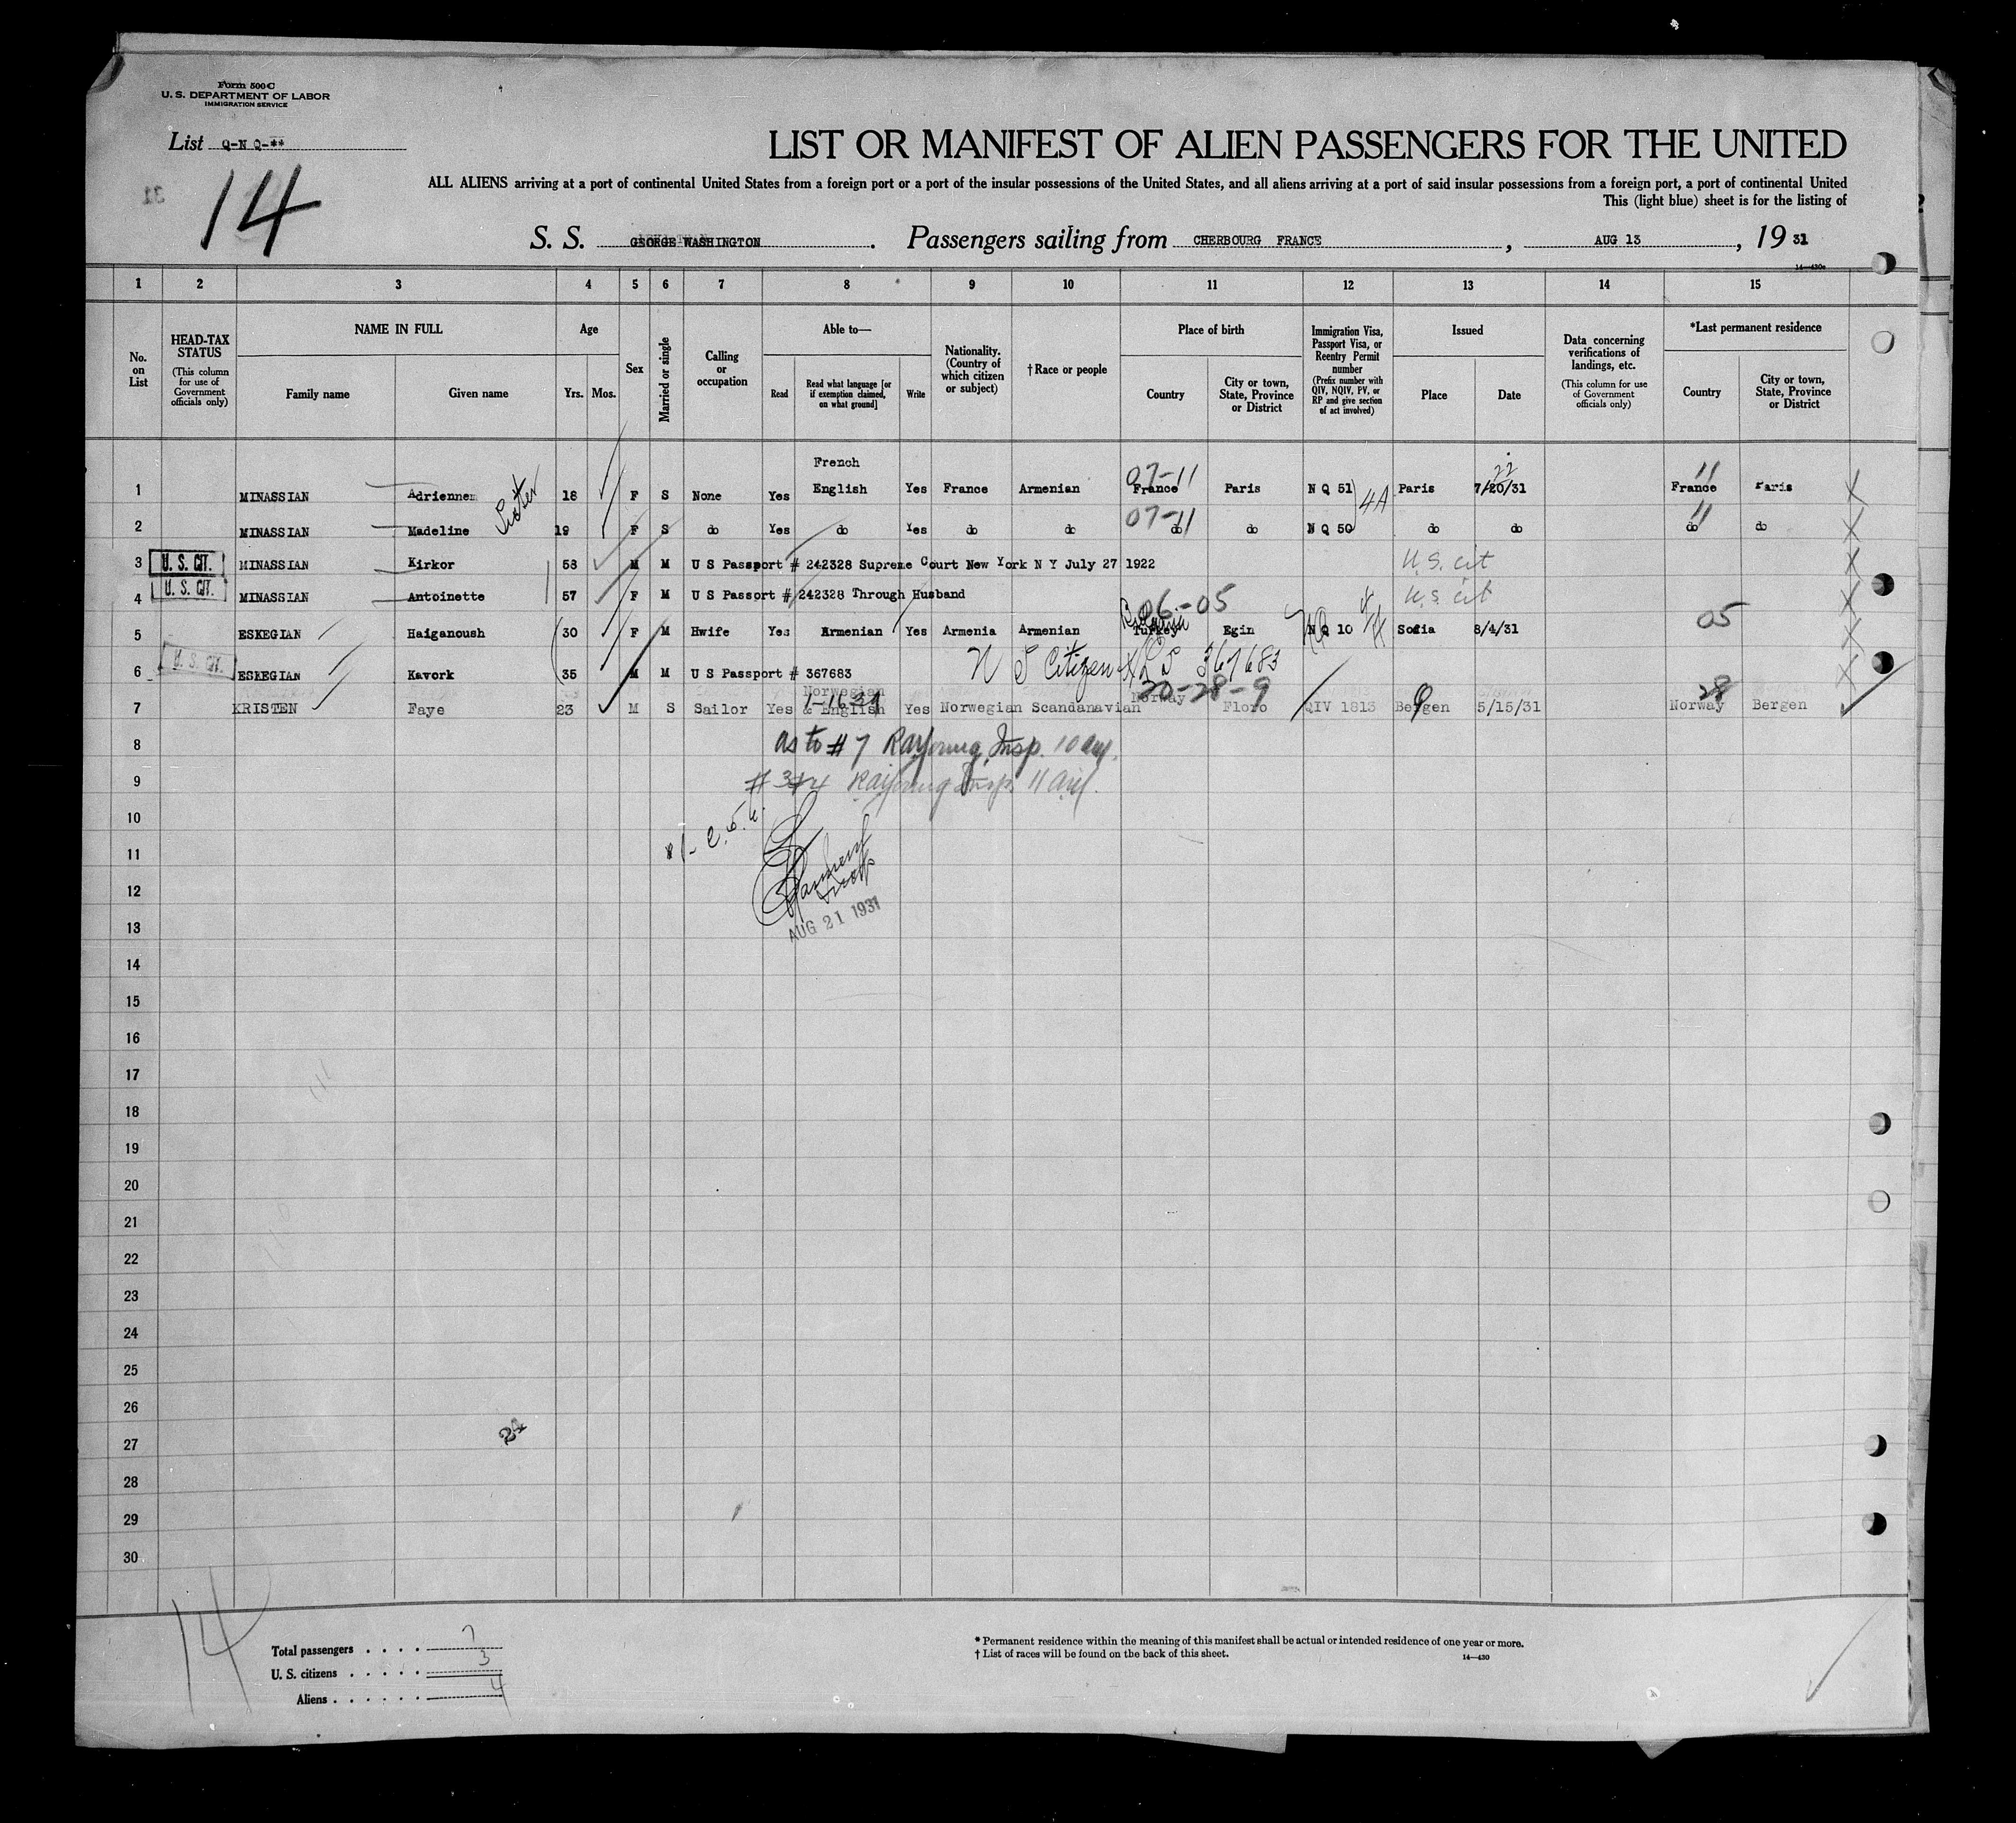 Form 500 C
U. S. DEPARTMENT OF LABOR
IMMIGRATION SERVICE
List Q-N Q-**
14
31
LIST OR MANIFEST OF ALIEN PASSENGERS FOR THE UNITED
ALL ALIENS arriving at a port of continental United States from a foreign port or a port of the insular possessions of the United States, and all aliens arriving at a port of said insular possessions from a foreign port, a port of continental United
This (light blue) sheet is for the listing of
S. S. GEORGE WASHINGTON. Passengers sailing from CHERBOURG FRANCE, AUG 13, 19 31
14—430c
1 2 3 4 5 6 7 8 9 10 11 12 13 14 15
No. on List
HEAD-TAX STATUS (This column for use of Government officials only)
NAME IN FULL
Family name Given name
Age
Yrs. Mos.
Sex
Married or single
Calling or occupation
Able to—
Read Read what language [or if exemption claimed, on what ground] Write
Nationality. (Country of which citizen or subject)
†Race or people
Place of birth
Country City or town, State, Province or District
Immigration Visa, Passport Visa, or Reentry Permit number (Prefix number with QIV, NQIV, PV, or RP and give section of act involved)
Issued
Place Date
Data concerning verifications of landings, etc. (This column for use of Government officials only)
*Last permanent residence
Country City or town, State, Province or District
French 07-11 22 11
1 MINASSIAN Adrienne Sister 18 F S None Yes English Yes France Armenian France Paris N Q 51 4A Paris 7/20/31 France Paris
07-11 11
2 MINASSIAN Madeline 19 F S do Yes do Yes do do do do N Q 50 do do do do
3 U. S. CIT. MINASSIAN Kirkor 58 M M U S Passport # 242328 Supreme Court New York N Y July 27 1922 U.S. cit
4 U. S. CIT. MINASSIAN Antoinette 57 F M U S Passort # 242328 Through Husband U.S. cit
06-05 05
5 ESKEGIAN Haiganoush 30 F M Hwife Yes Armenian Yes Armenia Armenian Turkey Egin N Q 10 Sofia 8/4/31
6 U. S. CIT. ESKEGIAN Kavork 35 M M U S Passport # 367683 U S Citizen 367683
Norwegian 20-28-9 28
7 KRISTEN Faye 23 M S Sailor Yes & English Yes Norwegian Scandanavian Norway Floro QIV 1813 Bergen 5/15/31 Norway Bergen
8 as to # 7 Insp.
9 # 3+4 Insp.
10
11
12
AUG 21 1931
13
14
15
16
17
18
19
20
21
22
23
24
25
26
27
24
28
29
30
14
Total passengers . . . . 7
U. S. citizens . . . . . 3
Aliens . . . . . . 4
* Permanent residence within the meaning of this manifest shall be actual or intended residence of one year or more.
† List of races will be found on the back of this sheet.
14—430